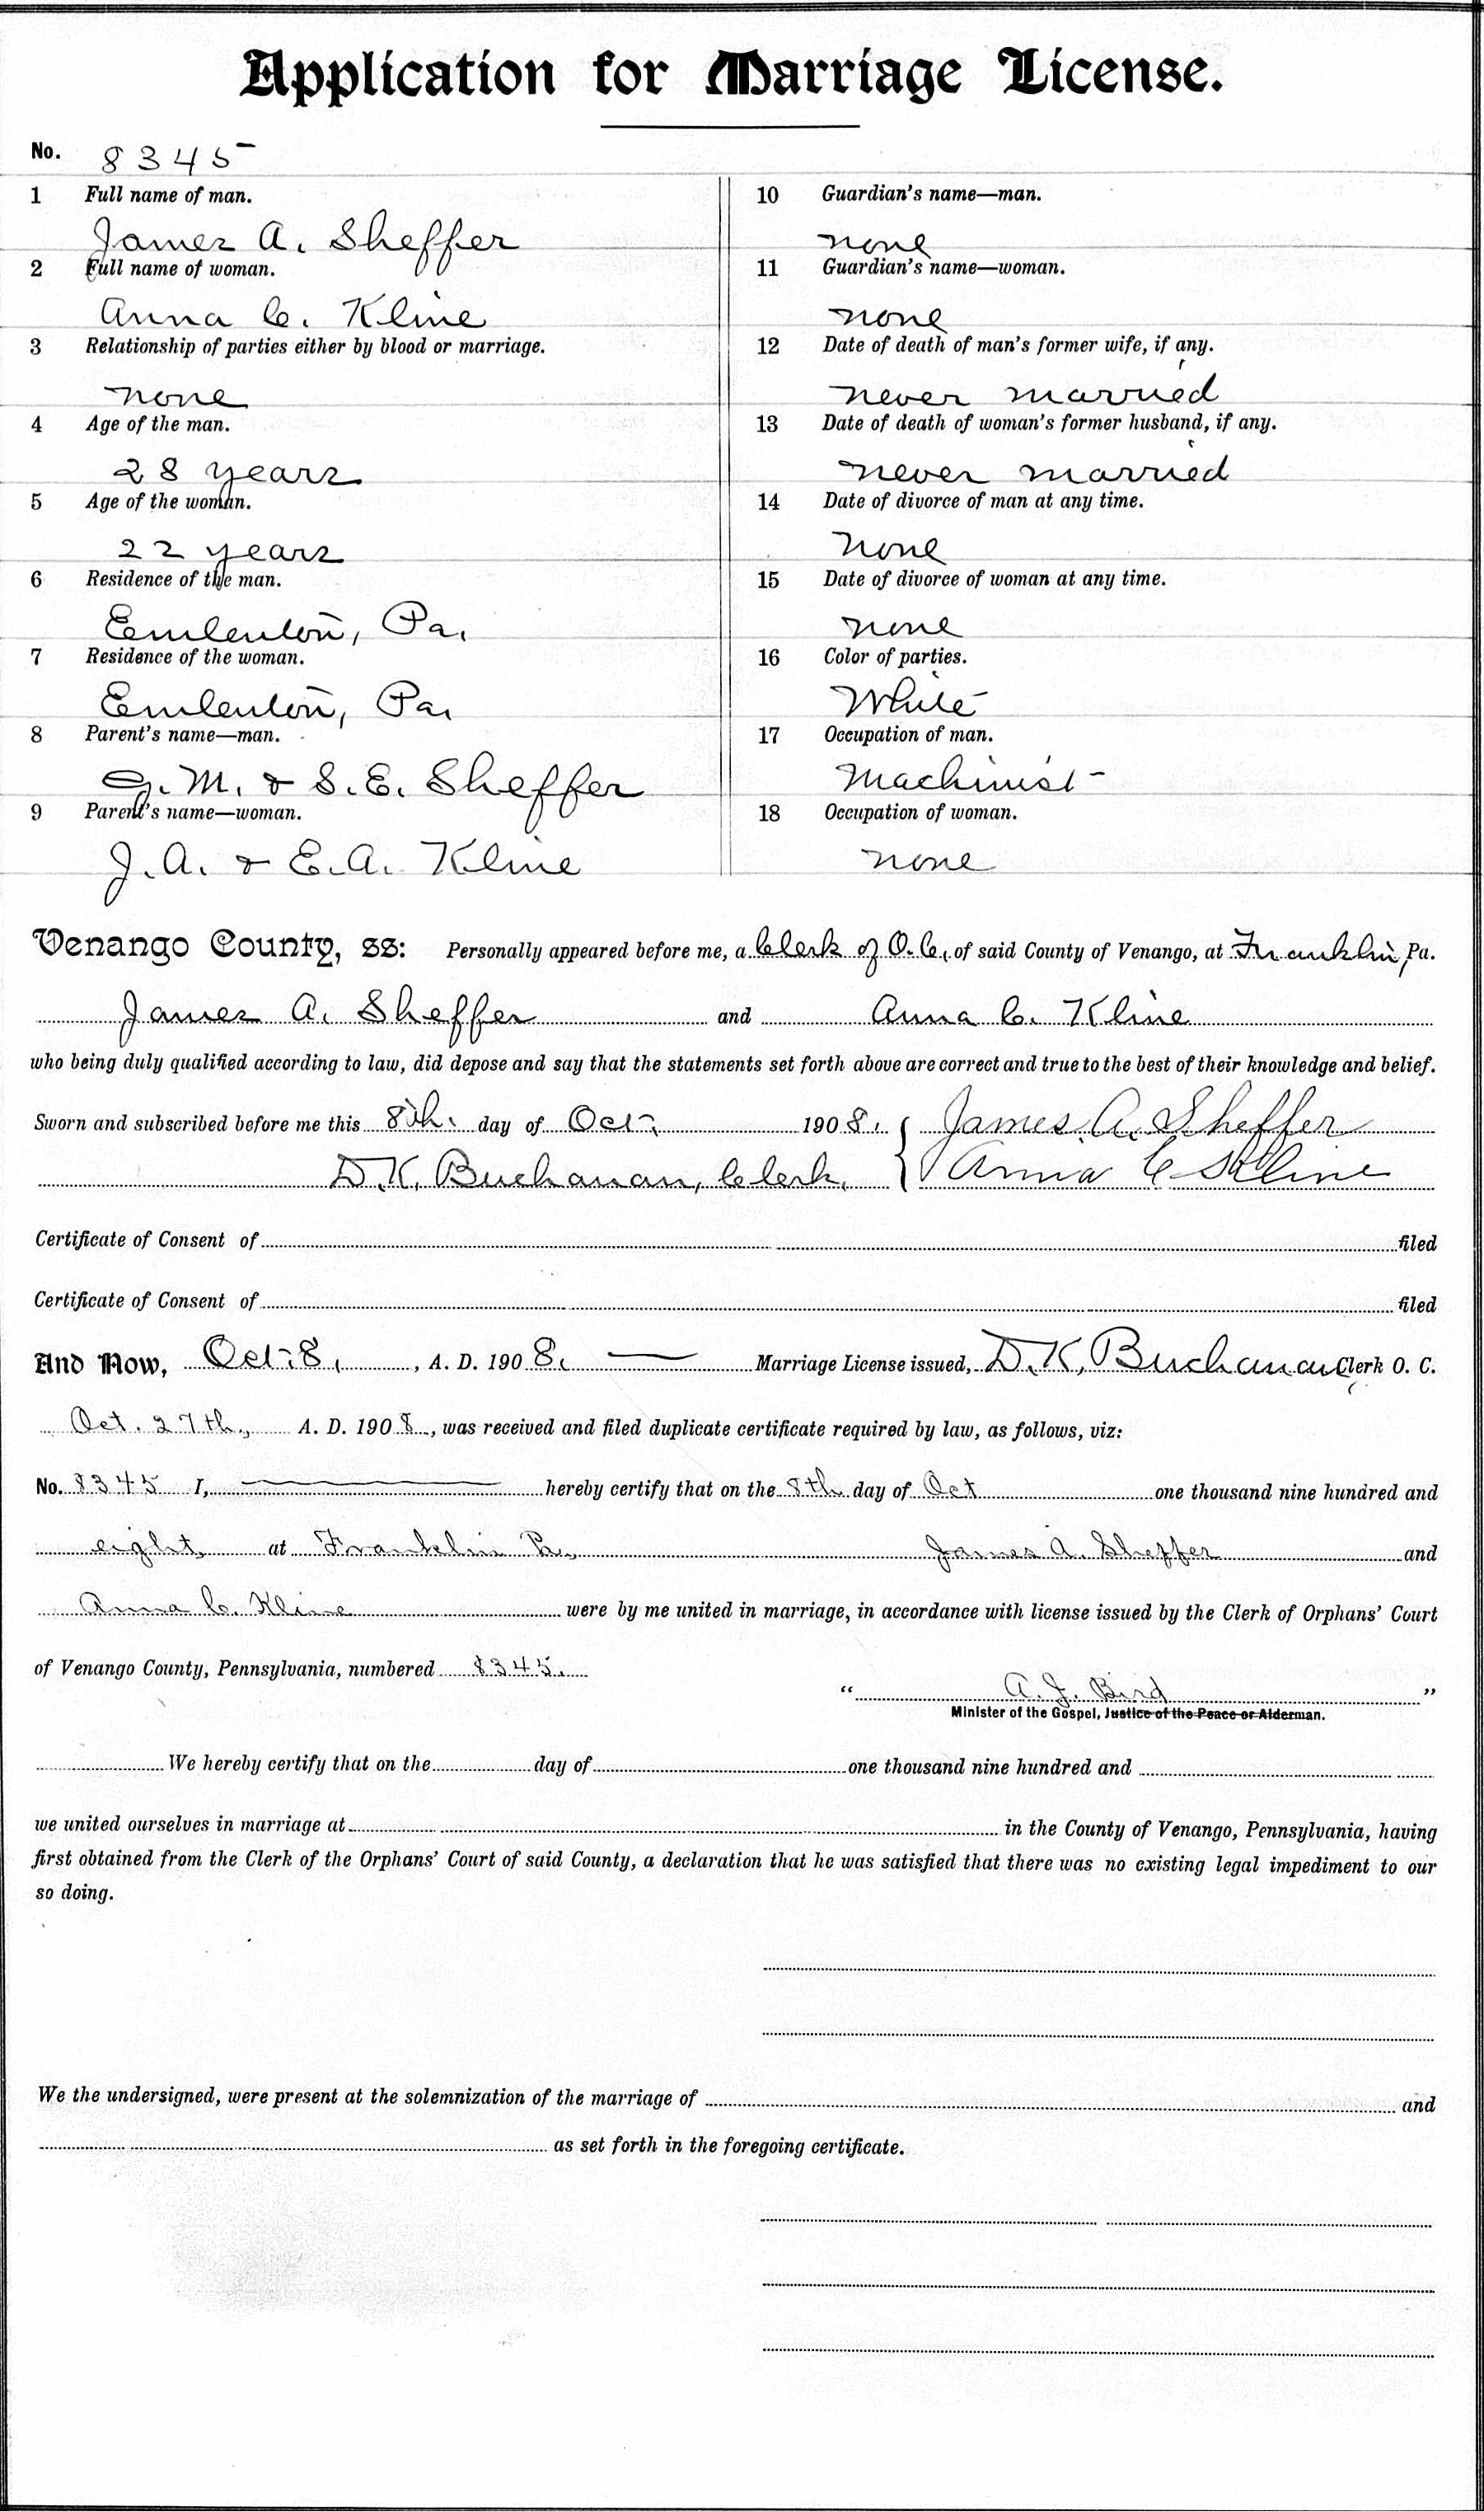 Application for Marriage License.
No. 8345
1 Full name of man.
James A. Sheffer
2 Full name of woman.
Anna C. Kline
3 Relationship of parties either by blood or marriage.
none
4 Age of the man.
28 years
5 Age of the woman.
22 years
6 Residence of the man.
Emlenton, Pa.
7 Residence of the woman.
Emlenton, Pa.
8 Parent's name—man.
G. M. & S. E. Sheffer
9 Parent's name—woman.
J. A. & E. A. Kline
10 Guardian's name—man.
none
11 Guardian's name—woman.
none
12 Date of death of man's former wife, if any.
never married
13 Date of death of woman's former husband, if any.
never married
14 Date of divorce of man at any time.
None
15 Date of divorce of woman at any time.
none
16 Color of parties.
White
17 Occupation of man.
Machinist
18 Occupation of woman.
none
Venango County, ss: Personally appeared before me, a Clerk of O. C. of said County of Venango, at Franklin, Pa.
James A. Sheffer and Anna C. Kline
who being duly qualified according to law, did depose and say that the statements set forth above are correct and true to the best of their knowledge and belief.
Sworn and subscribed before me this 8th. day of Oct. 1908. James. A. Sheffer
D. K. Buchanan, Clerk. Anna C Kline
Certificate of Consent of filed
Certificate of Consent of filed
And Now, Oct. 8, , A. D. 1908. — Marriage License issued, D. K. Buchanan Clerk O. C.
Oct. 27th, A. D. 1908, was received and filed duplicate certificate required by law, as follows, viz:
No. 8345 I, hereby certify that on the 8th day of Oct one thousand nine hundred and
eight at Franklin Pa. James A. Sheffer and
Anna C. Kline were by me united in marriage, in accordance with license issued by the Clerk of Orphans' Court
of Venango County, Pennsylvania, numbered 8345.
" A. J. Bird "
Minister of the Gospel, Justice of the Peace or Alderman.
We hereby certify that on the day of one thousand nine hundred and
we united ourselves in marriage at in the County of Venango, Pennsylvania, having
first obtained from the Clerk of the Orphans' Court of said County, a declaration that he was satisfied that there was no existing legal impediment to our
so doing.
We the undersigned, were present at the solemnization of the marriage of and
as set forth in the foregoing certificate.